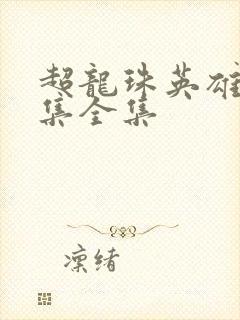 超龍珠英雄
集全集
凜緒